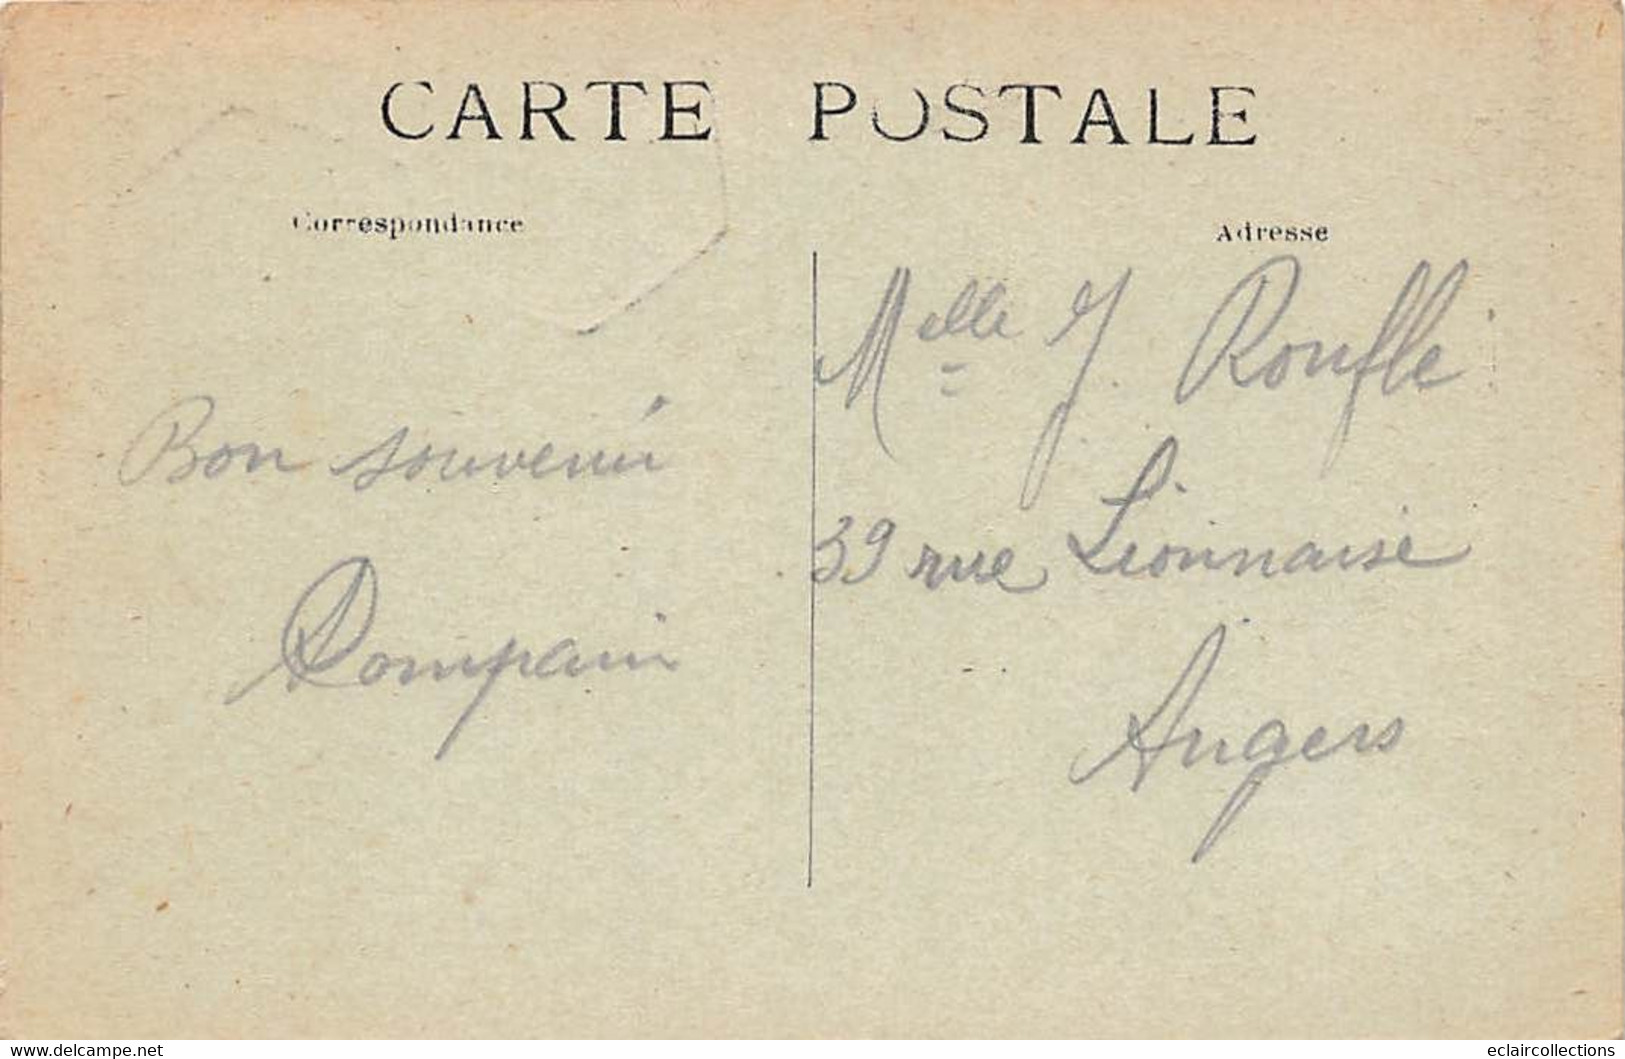 CARTE POSTALE
Correspondance
Adresse
Bon souvenir
Rompain
Melle J. Roufle
39 rue Lionnaise
Angers
www.delcampe.net
eclaircollections